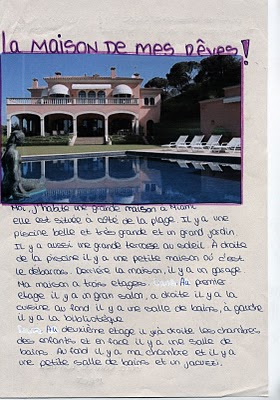 La MAISON DE MES RÊVES!
Moi, j'habite une grande maison à Miami
elle est située à côté de la plage. Il y a une
piscine belle et très grande et un grand jardin
Il y a aussi une grande terrasse au soleil. À droite
de la piscine il y a une petite maison où c'est
le débarras. Derrière la maison, il y a un garage.
Ma maison a trois étages. Au premier
étage il y a un gran salon, a droite il y a la
cuisine au fond il y a une salle de bains, à gauche
il y a la bibliothèque
Au deuxième étage il y a à droite les chambres
des enfants et en face il y a une salle de
bains. Au fond il y a ma chambre et il y a
une petite salle de bains et un jacuzi.